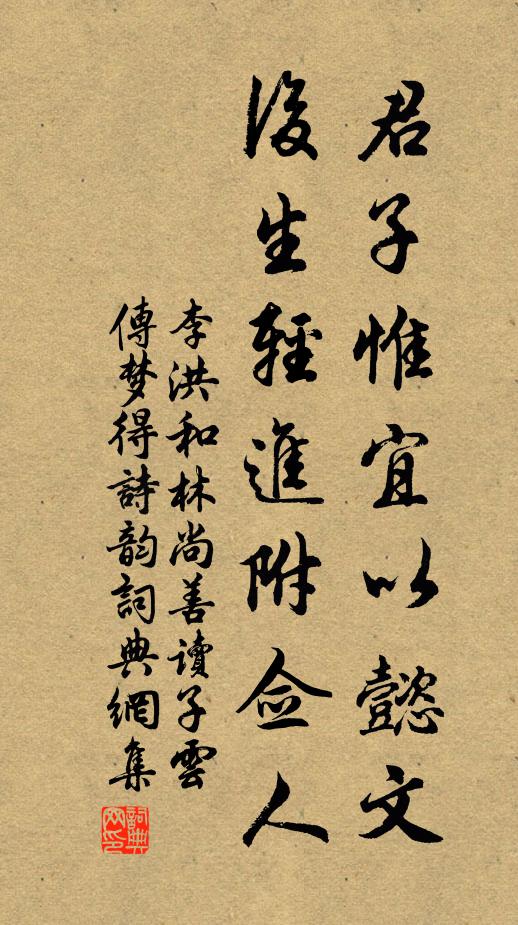 君子惟宜以懿文
後生輕進附佥人
李洪和林尚善讀子雲
傳梦得詩韵詞典網集
詞典网印